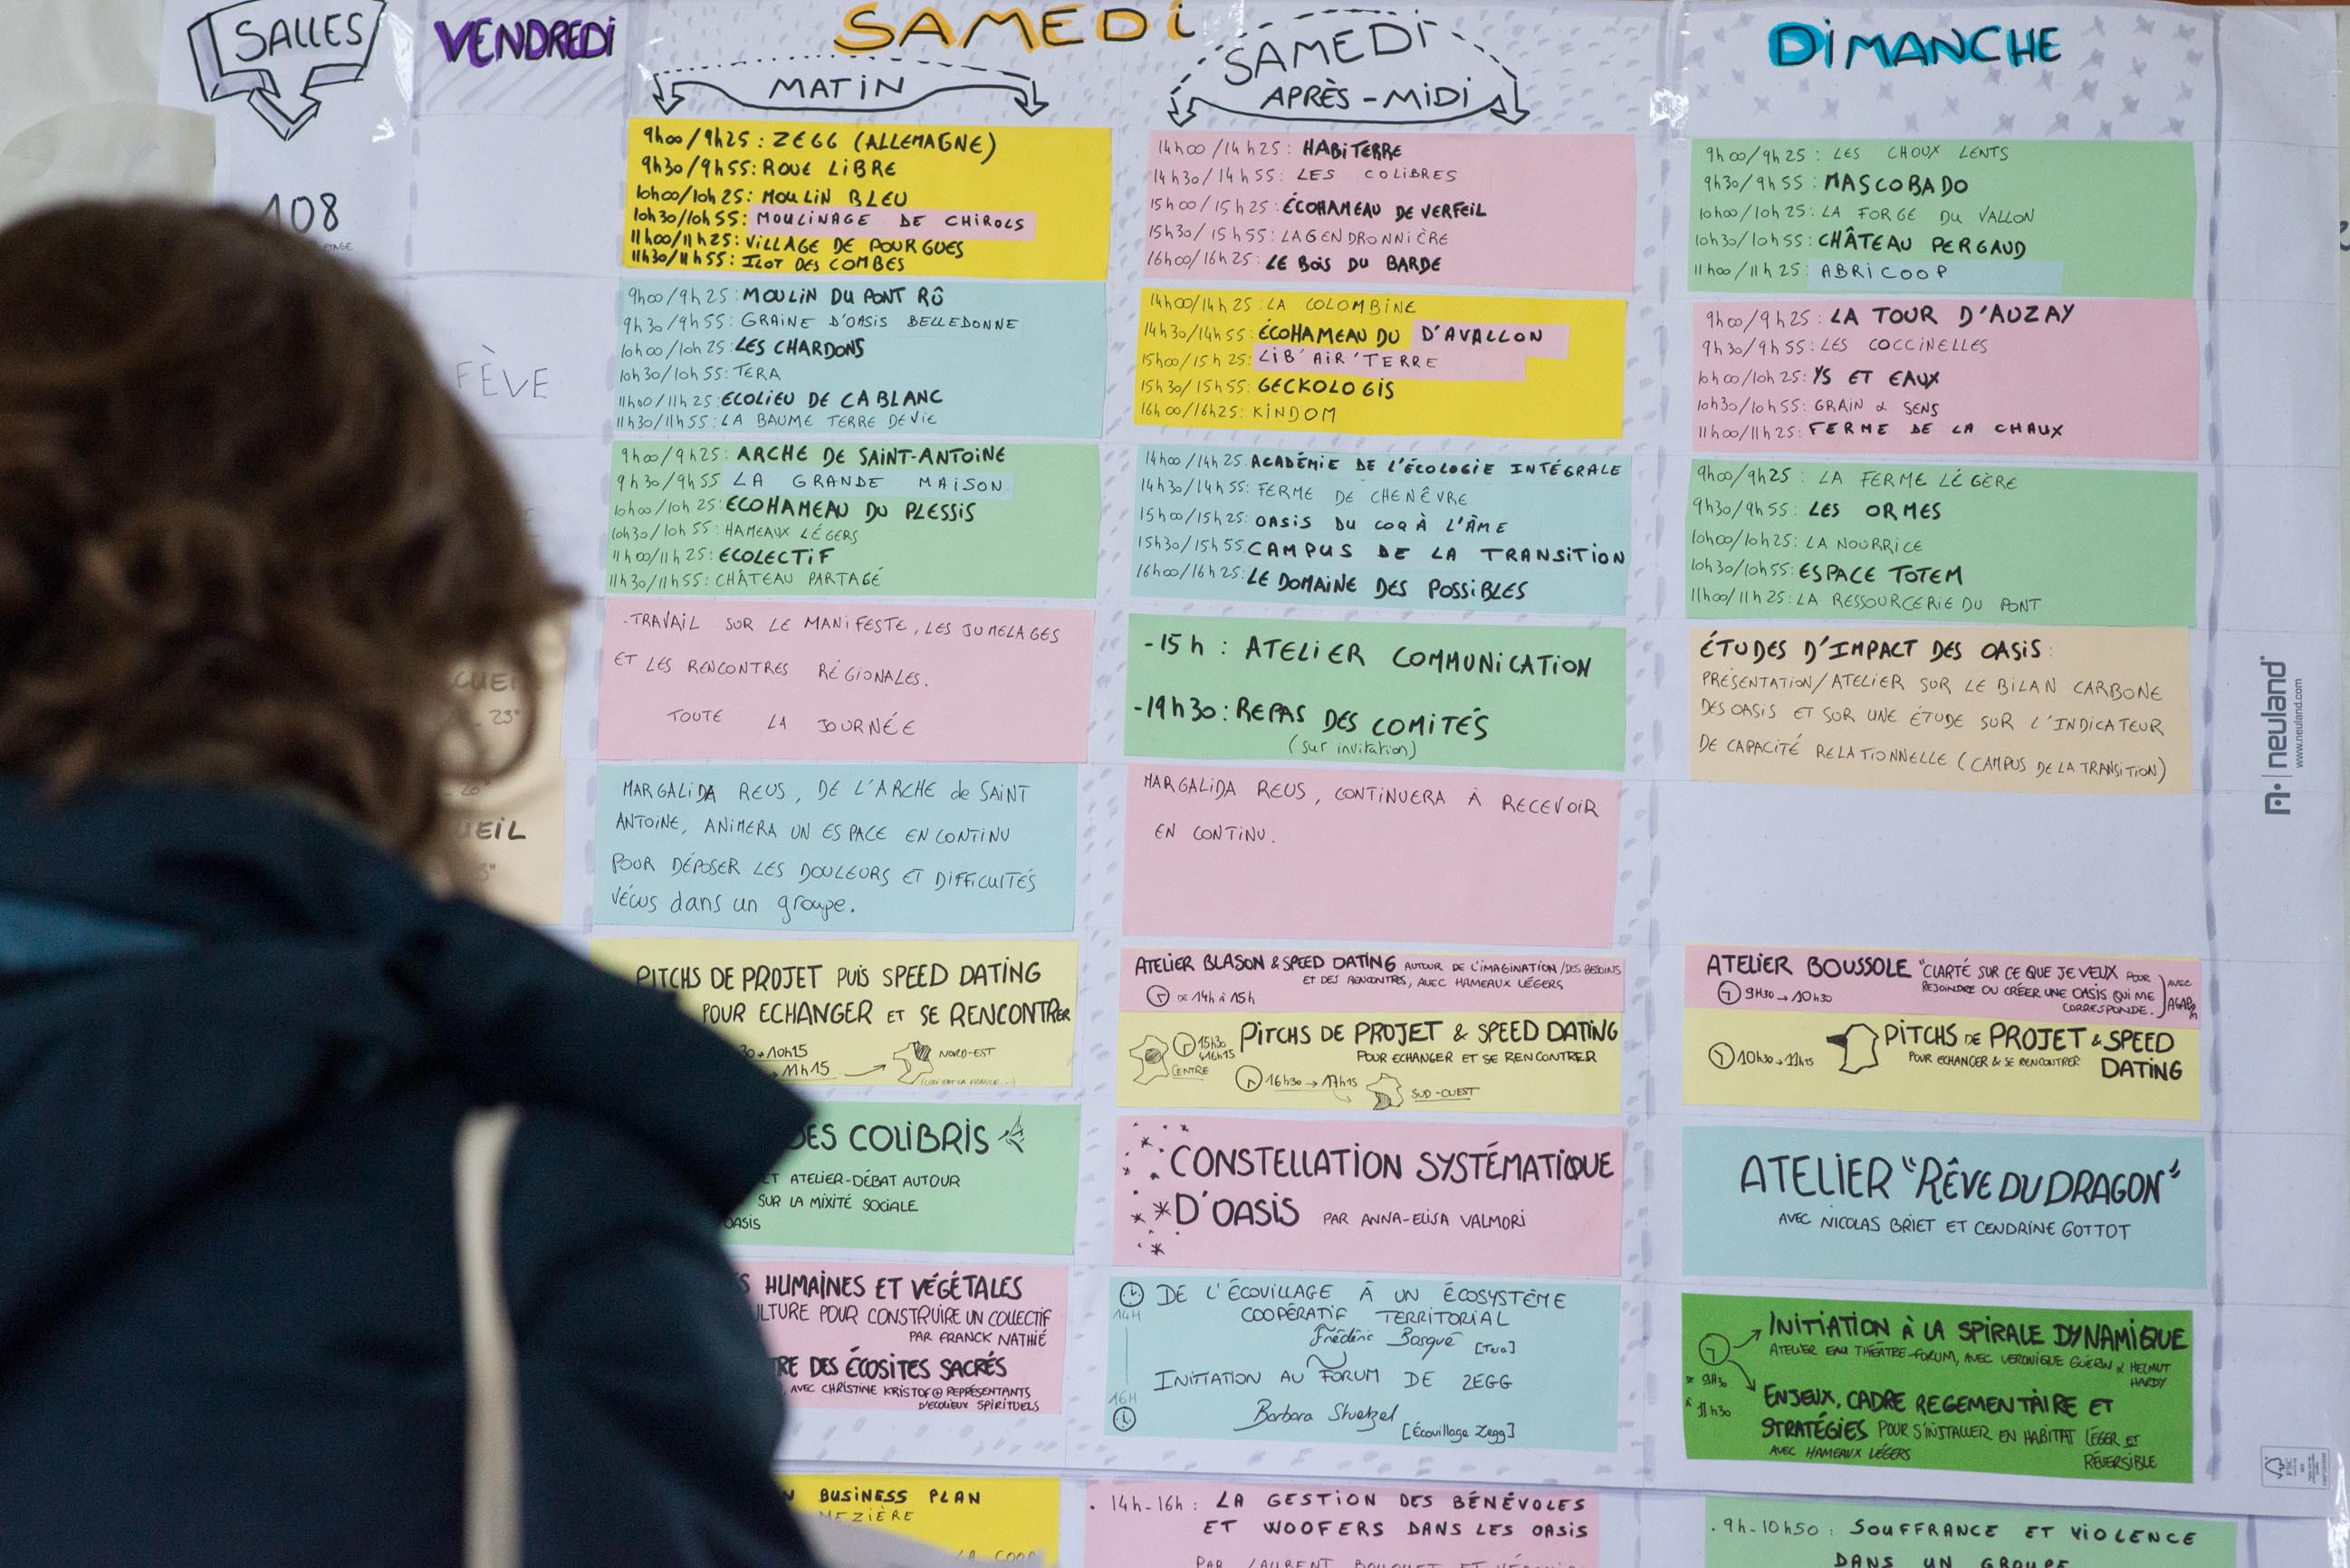 SALLES
VENDREDI
SAMEDI
MATIN
SAMEDI
APRÈS-MIDI
DIMANCHE
108
9h00/9h25 : ZEGG (ALLEMAGNE)
9h30/9h55: ROUE LIBRE
10h00/10h25: MOULIN BLEU
10h30/10h55: MOULINAGE DE CHIROLS
11h00/11h25: VILLAGE DE POURGUES
11h30/11h55: ILOT DES COMBES
14h00/14h25: HABITERRE
14h30/14h55: LES COLIBRES
15h00/15h25: ÉCOHAMEAU DE VERFEIL
15h30/15h55: LAGENDRONNIÈRE
16h00/16h25: LE BOIS DU BARDE
9h00/9h25 : LES CHOUX LENTS
9h30/9h55 : MASCOBADO
10h00/10h25: LA FORGE DU VALLON
10h30/10h55: CHÂTEAU PERGAUD
11h00/11h25: ABRICOOP
FÈVE
9h00/9h25: MOULIN DU PONT RÛ
9h30/9h55: GRAINE D'OASIS BELLEDONNE
10h00/10h25: LES CHARDONS
10h30/10h55: TERA
11h00/11h25: ECOLIEU DE CABLANC
11h30/11h55: LA BAUME TERRE DE VIE
14h00/14h25: LA COLOMBINE
14h30/14h55: ÉCOHAMEAU DU D'AVALLON
15h00/15h25: LIB'AIR'TERRE
15h30/15h55: GECKOLOGIS
16h00/16h25: KINDOM
9h00/9h25: LA TOUR D'AUZAY
9h30/9h55: LES COCCINELLES
10h00/10h25: YS ET EAUX
10h30/10h55: GRAIN & SENS
11h00/11h25: FERME DE LA CHAUX
9h00/9h25: ARCHE DE SAINT-ANTOINE
9h30/9h55 LA GRANDE MAISON
10h00/10h25: ECOHAMEAU DU PLESSIS
10h30/10h55: HAMEAUX LÉGERS
11h00/11h25: ECOLECTIF
11h30/11h55: CHÂTEAU PARTAGÉ
14h00/14h25: ACADÉMIE DE L'ÉCOLOGIE INTÉGRALE
14h30/14h55: FERME DE CHENÈVRE
15h00/15h25: OASIS DU COQ À L'ÂME
15h30/15h55: CAMPUS DE LA TRANSITION
16h00/16h25: LE DOMAINE DES POSSIBLES
9h00/9h25: LA FERME LÉGÈRE
9h30/9h55: LES ORMES
10h00/10h25: LA NOURRICE
10h30/10h55: ESPACE TOTEM
11h00/11h25: LA RESSOURCERIE DU PONT
-TRAVAIL SUR LE MANIFESTE, LES JUMELAGES
ET LES RENCONTRES RÉGIONALES.
TOUTE LA JOURNÉE
-15h : ATELIER COMMUNICATION
-19h30: REPAS DES COMITÉS
(sur invitation)
ÉTUDES D'IMPACT DES OASIS:
PRÉSENTATION/ATELIER SUR LE BILAN CARBONE
DES OASIS ET SUR UNE ÉTUDE SUR L'INDICATEUR
DE CAPACITÉ RELATIONNELLE (CAMPUS DE LA TRANSITION)
MARGALIDA REUS, DE L'ARCHE de SAINT
ANTOINE, ANIMERA UN ESPACE EN CONTINU
POUR DÉPOSER LES DOULEURS ET DIFFICULTÉS
VÉCUS dans un groupe.
MARGALIDA REUS, CONTINUERA À RECEVOIR
EN CONTINU.
PITCHS DE PROJET PUIS SPEED DATING
POUR ECHANGER ET SE RENCONTRER
30→10h15
→ 11h15
NORD-EST
ATELIER BLASON & SPEED DATING AUTOUR DE L'IMAGINATION/DES BESOINS
ET DES RENCONTRES, AVEC HAMEAUX LÉGERS
DE 14h À 15h
15h30
à 16h15
CENTRE
PITCHS DE PROJET & SPEED DATING
POUR ECHANGER ET SE RENCONTRER
16h30→17h15
SUD-OUEST
ATELIER BOUSSOLE "CLARTÉ SUR CE QUE JE VEUX POUR
REJOINDRE OU CRÉER UNE OASIS QUI ME
CORRESPONDE.
AVEC
9H30→10h30
10h30→11h15
PITCHS DE PROJET & SPEED
POUR ECHANGER & SE RENCONTRER
DATING
DES COLIBRIS
ET ATELIER-DÉBAT AUTOUR
SUR LA MIXITÉ SOCIALE
OASIS
CONSTELLATION SYSTÉMATIQUE
D'OASIS PAR ANNA-ELISA VALMORI
ATELIER "RÊVE DU DRAGON"
AVEC NICOLAS BRIET ET CENDRINE GOTTOT
HUMAINES ET VÉGÉTALES
LTURE POUR CONSTRUIRE UN COLLECTIF
PAR FRANCK NATHIÉ
TRE DES ÉCOSITES SACRÉS
AVEC CHRISTINE KRISTOF & REPRÉSENTANTS
D'ECOLIEUX SPIRITUELS
14H
DE L'ÉCOVILLAGE À UN ÉCOSYSTÈME
COOPÉRATIF TERRITORIAL
Frédéric Bosqué [Tera]
INITIATION AU FORUM DE ZEGG
16H
Barbara Stuetzel
[Écovillage Zegg]
INITIATION À LA SPIRALE DYNAMIQUE
ATELIER EAU THÉÂTRE-FORUM, AVEC VERONIQUE GUÉRIN & HELMUT
HARDY
DE 9H30
À 11h30
ENJEUX, CADRE REGEMENTAIRE ET
STRATÉGIES POUR S'INSTALLER EN HABITAT LÉGER ET
AVEC HAMEAUX LÉGERS
RÉVERSIBLE
BUSINESS PLAN
MEZIÈRE
LA COOP
. 14h-16h : LA GESTION DES BÉNÉVOLES
ET WOOFERS DANS LES OASIS
PAR LAURENT BOUQUET ET
. 9h-10h50 : SOUFFRANCE ET VIOLENCE
DANS UN GROUPE
neuland
www.neuland.com